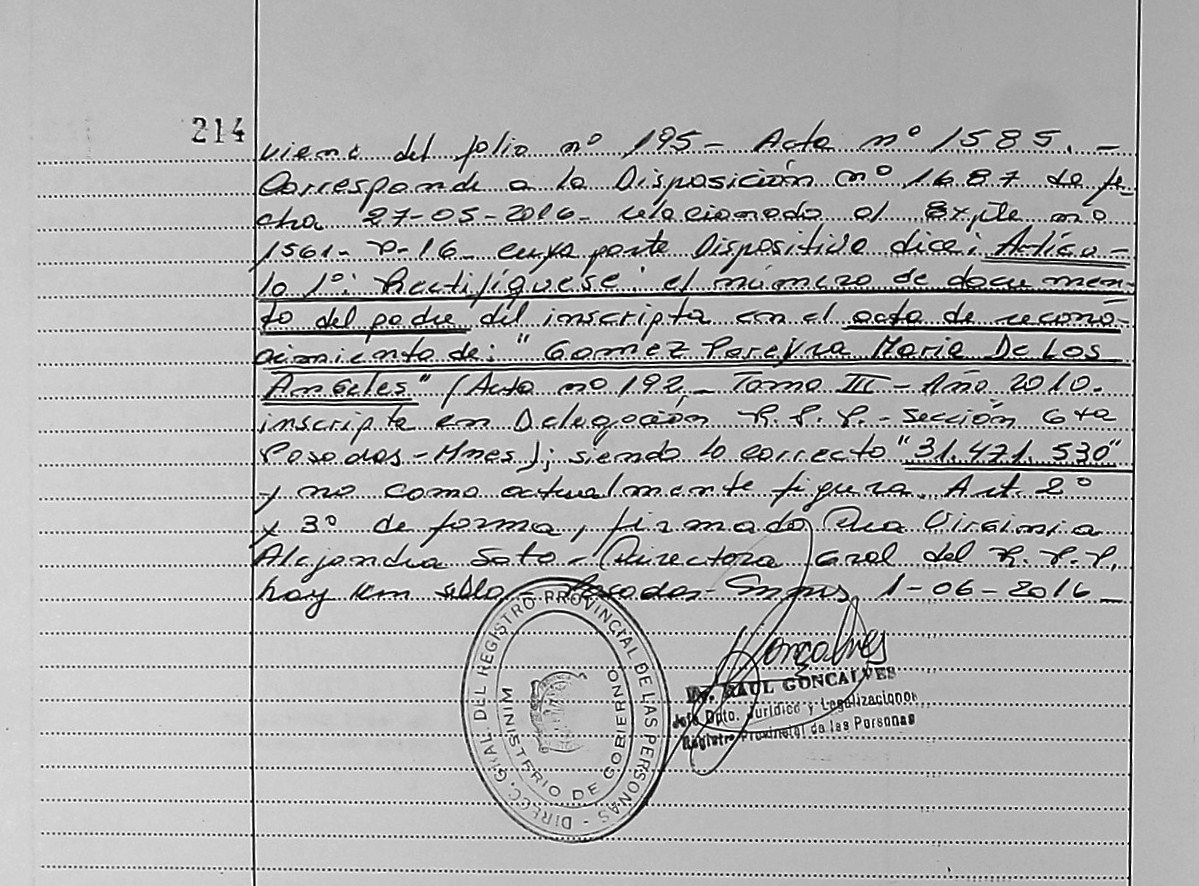 214
viene del folio nº 195- Acta nº 1585.-
Corresponde a la Disposición nº 1687 de fe-
cha 27-05-2016- relacionado al Expte nº
1561- P-16- cuya parte Dispositiva dice: Artícu-
lo 1º: Rectifíquese: el número de documen-
to del padre del inscripta en el acta de recono-
cimiento de: "Gomez Pereyra Maria De Los
Angeles" (Acta nº 192,- Tomo III- Año 2010-
inscripta en Delegación R.P.P.- Sección 6ta
Posadas-Mnes); siendo lo correcto "31.471.530"
y no como actualmente figura. Art. 2º
y 3º de forma, firmado Virginia
Alejandra Soto- Directora Gral del R.P.P.
hay un sello- Posadas- 1-06-2016-
DIRECC. GRAL. DEL REGISTRO PROVINCIAL DE LAS PERSONAS -
MINISTERIO DE GOBIERNO
Gonçalves
Dr. RAUL GONCALVES
Jefe Dpto. Jurídico y Legalizaciones
Registro Provincial de las Personas